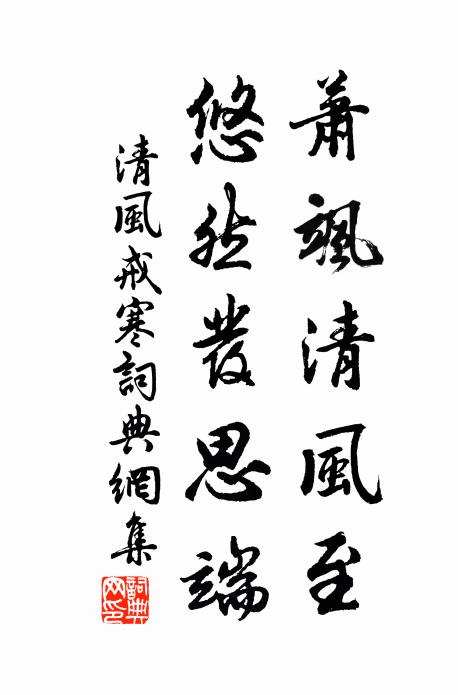 蕭颯清風至
悠然發思端
清風戒寒詞典網集
詞典网印